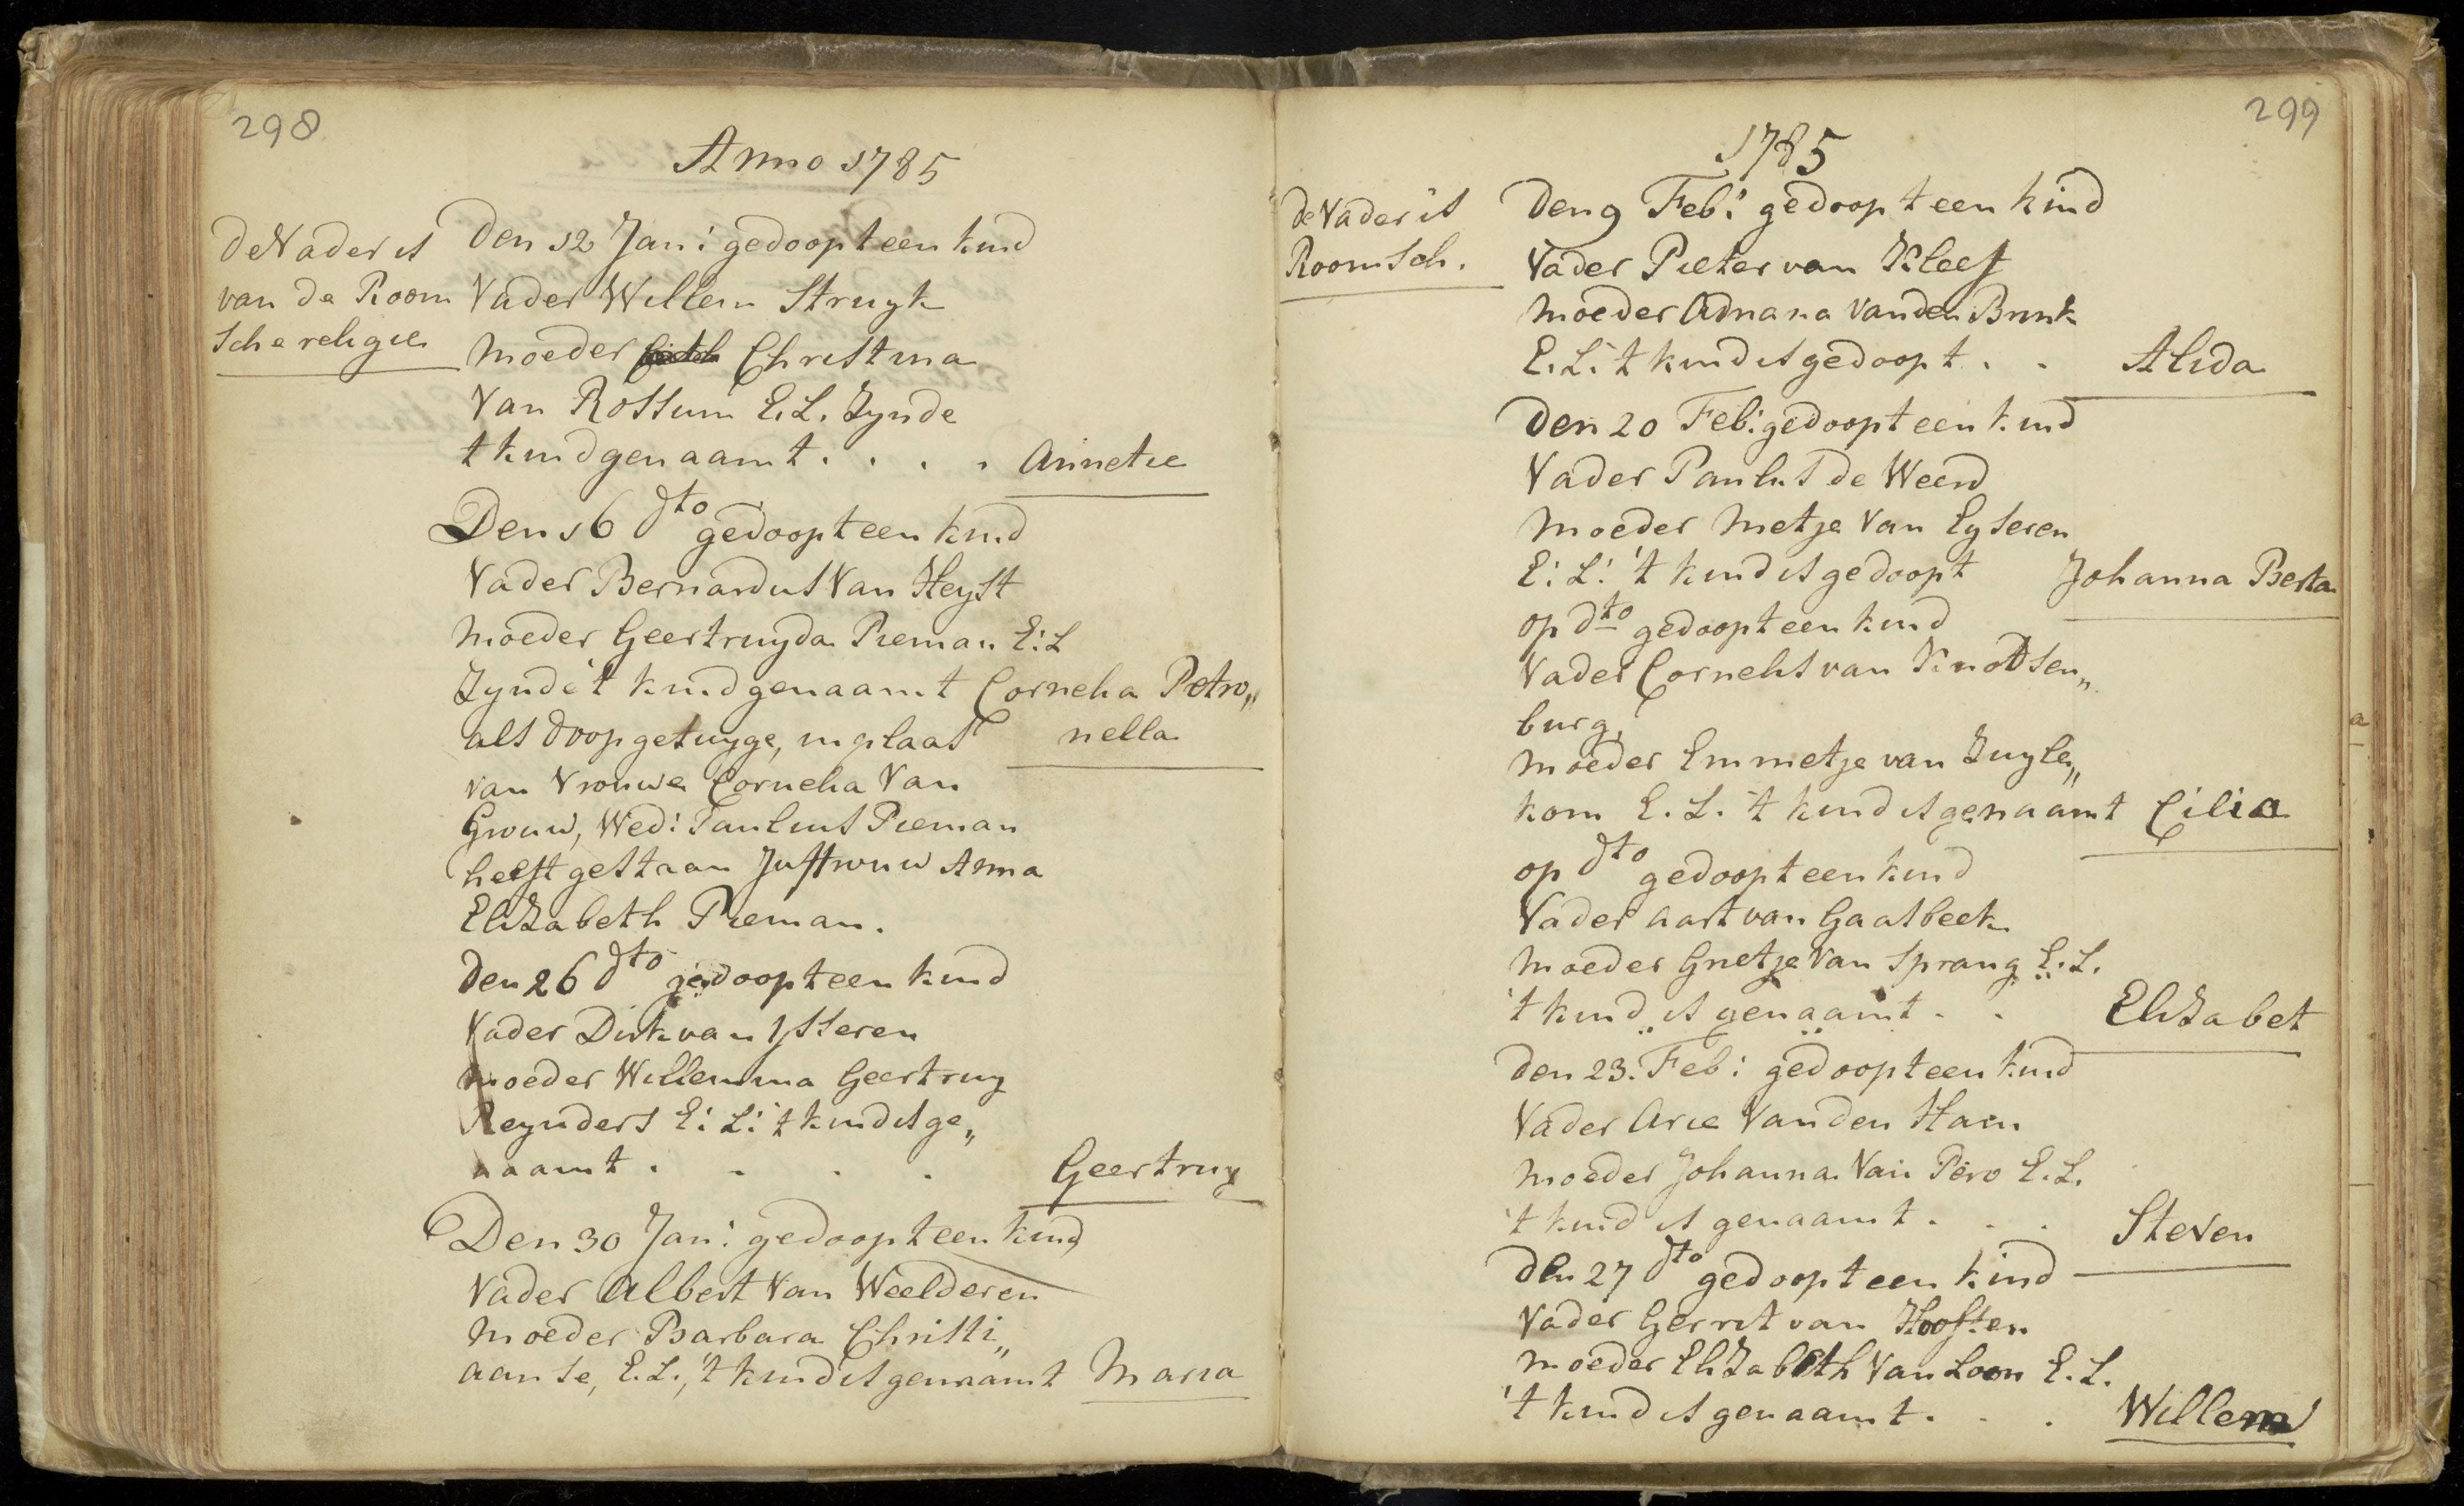 298
Anno 1785
de Vader is
van de Room
sche religie
Den 12 Jan: gedoopt een kind
Vader Willem Struyk
moeder Christina
Van Rossum E.L. Zynde
t kind genaamt . . . . Annetie
Den 16 dto gedoopt een kind
Vader Bernardus Van Heyst
moeder Geertruyda Pieman E:L
Zynde 't kind genaamt Cornelia Petro„
als doop getuyge, in plaas nella
van Vrouwe Cornelia Van
Grouw, Wed: Paulus Pieman
heeft gestaan Juffrouw Anna
Elizabeth Pieman.
den 26 dto gedoopt een kind
Vader Dirk van Ysseren
moeder Willemina Geertruy
Reynders E: L: 't kind is ge„
naamt . . . . Geertruy
Den 30 Jan: gedoopt een kind
Vader Albert Van Weelderen
moeder Barbara Christi„
aanse, E.L., 't kind is genaamt Maria
299
1785
de Vader is
Roomsch.
Den 9 Feb: gedoopt een kind
Vader Pieter van Kleef
moeder Adriana Van den Brink
E.L. 't kind is gedoopt . . Alida
Den 20 Feb: gedoopt een kind
Vader Paulus de Weerd
moeder Metje Van Eyseren
E: L: 't kind is gedoopt Johanna Berta
op dto gedoopt een kind
Vader Cornelis van Knodsen„
burg,
moeder Emmetje van Zuyle„
kom E. L. 't kind is genaamt Cilia
op dto gedoopt een kind
Vader Aart van Gaasbeek
moeder Grietje Van Sprang E.L.
't kind is genaamt . . Elizabet
den 23. Feb: gedoopt een kind
Vader Arie Van den Ham
moeder Johanna Van Pero E.L.
't kind is genaamt . . . Steven
den 27 dto gedoopt een kind
Vader Gerrit van Hooften
moeder Elizabeth Van Loon E.L.
't kind is genaamt . . . Willem